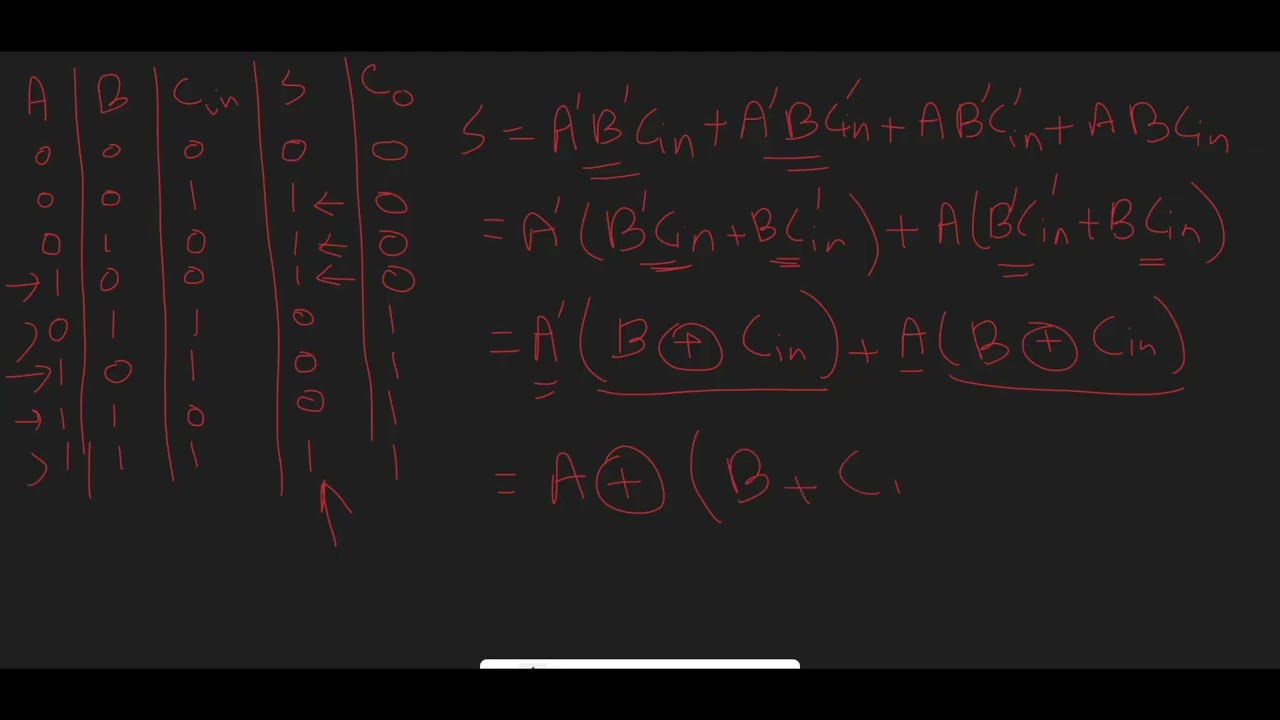 A B Cin S C0
0 0 0 0 0
0 0 1 1 ← 0
0 1 0 1 ← 0
→ 1 0 0 1 ← 0
0 1 1 0 1
→ 1 0 1 0 1
→ 1 1 0 0 1
1 1 1 1 1
S = A'B'Cin + A'BC'in + AB'C'in + ABCin
= A'(B'Cin + BC'in) + A(B'C'in + BCin)
= A'(B ⊕ Cin) + A(B ⊕ Cin)
= A ⊕ (B + C